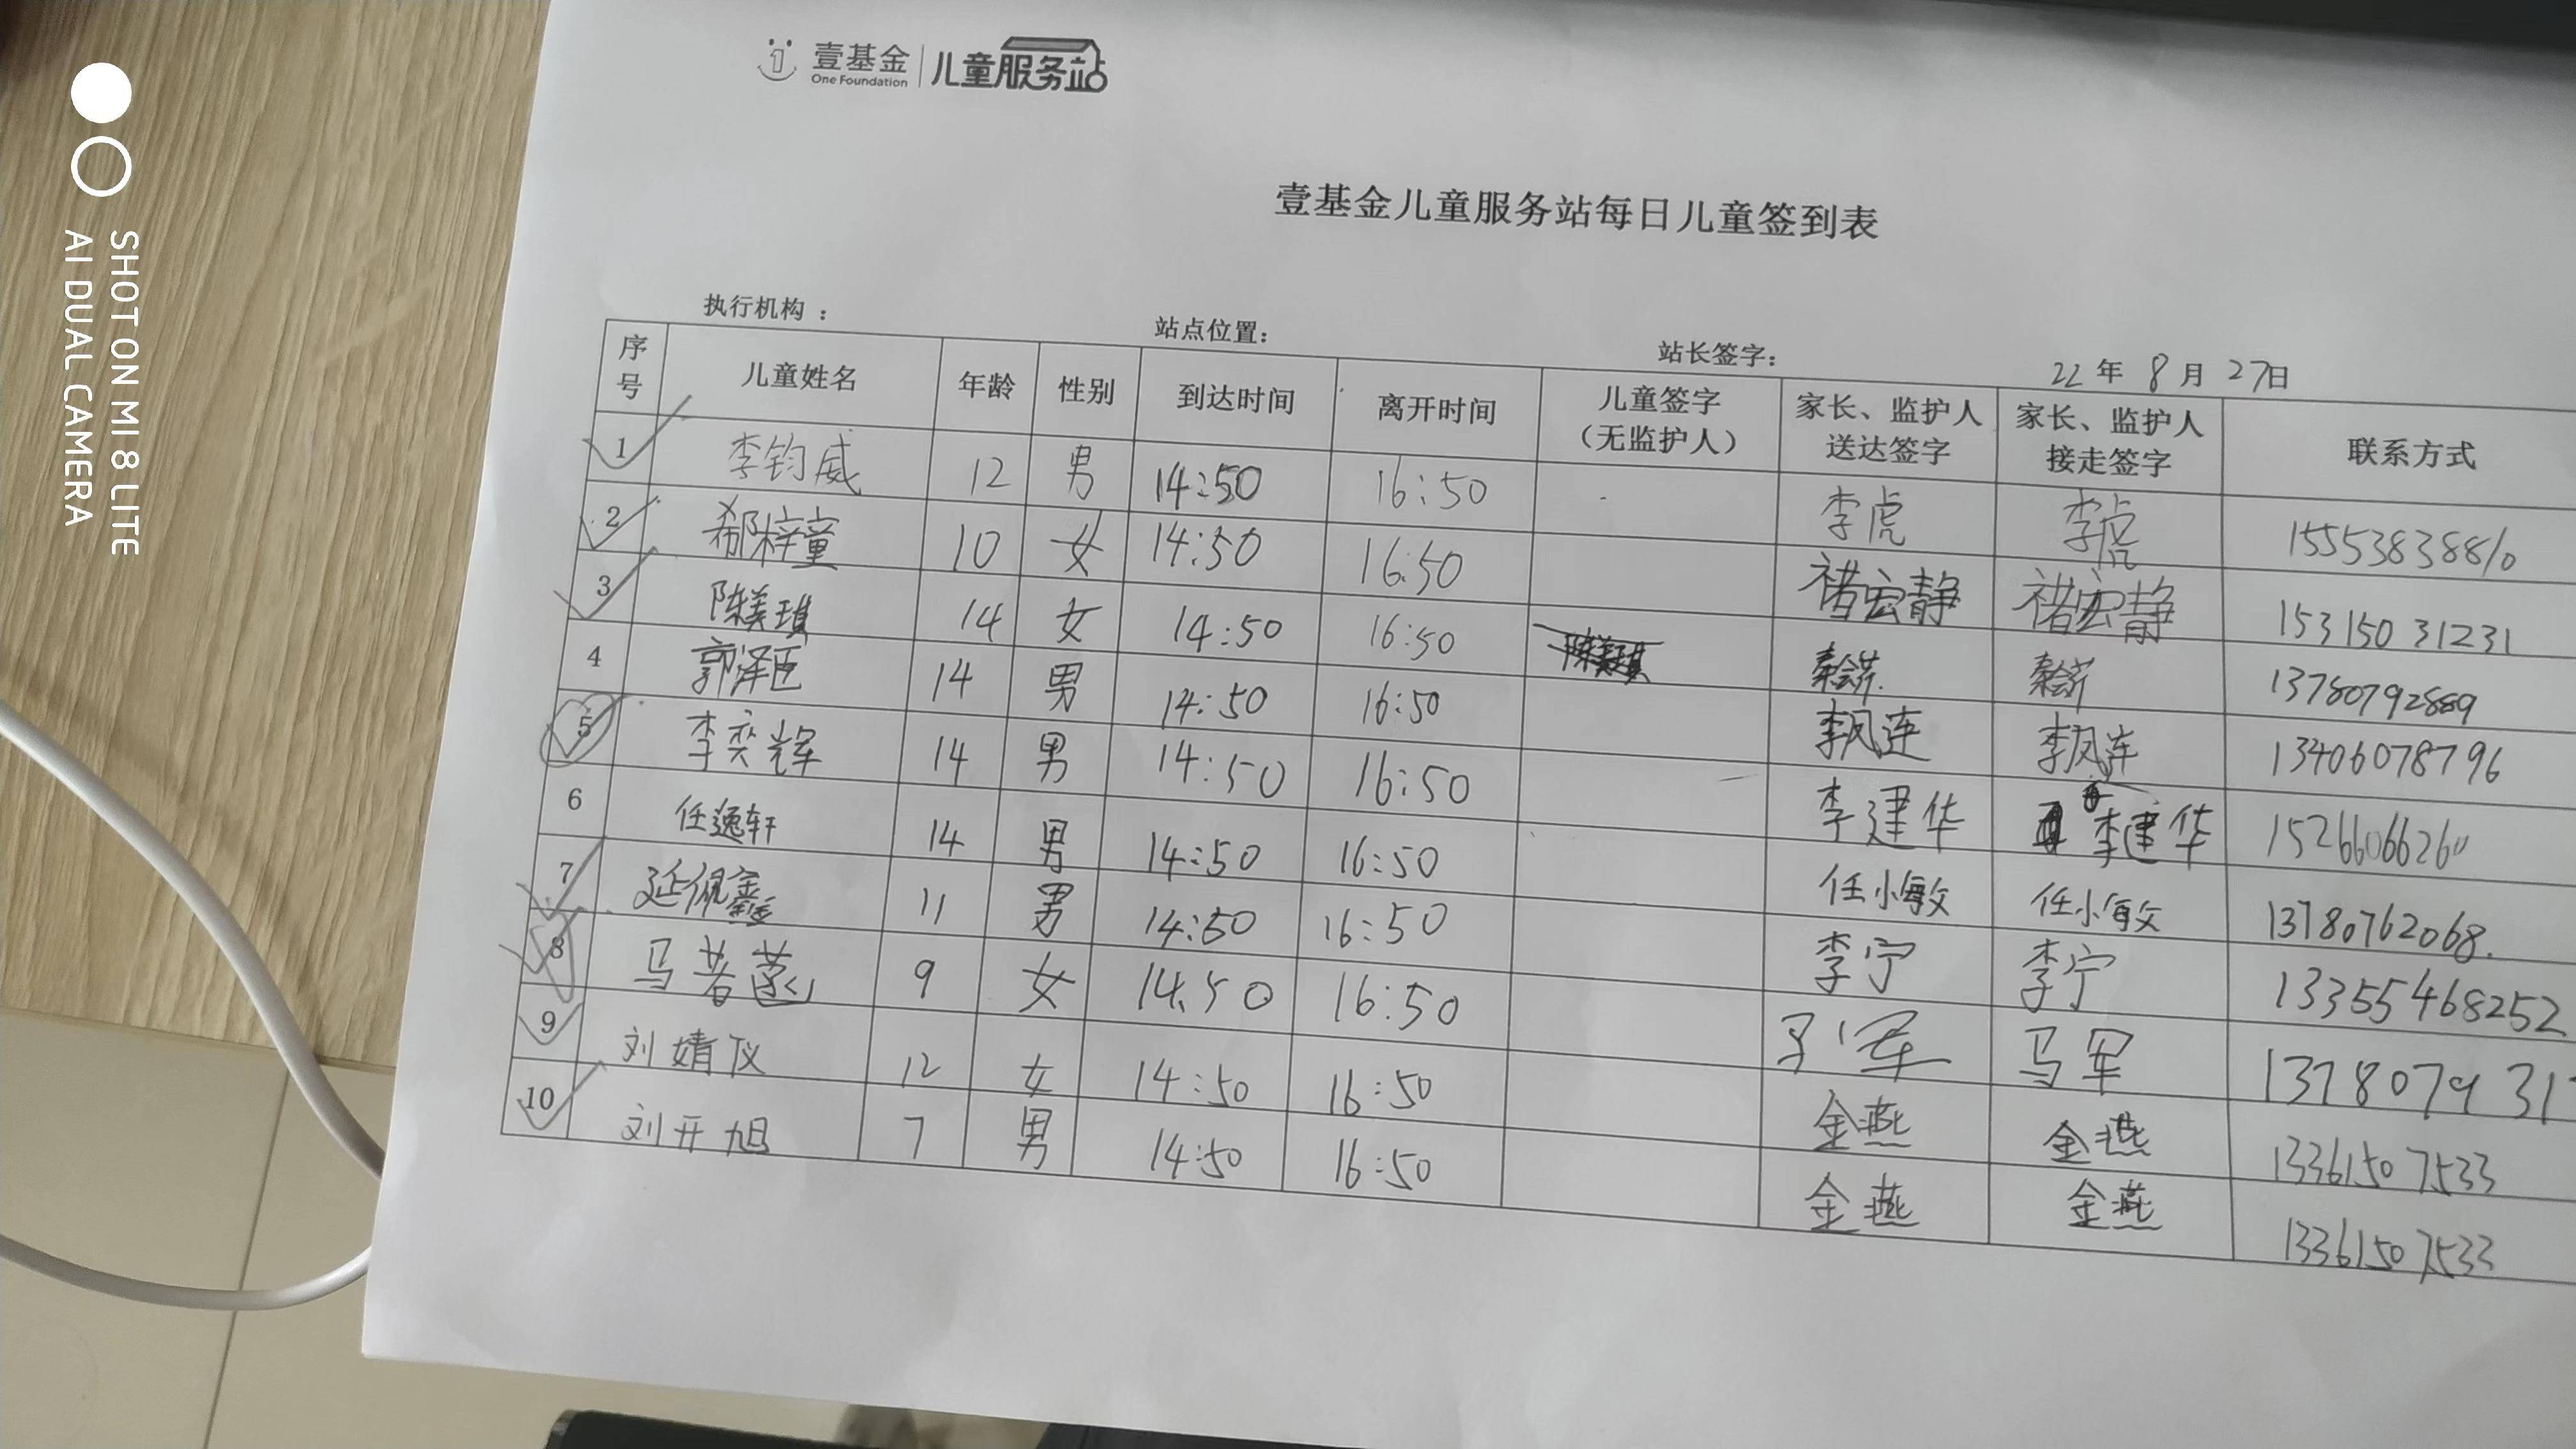 壹基金 儿童服务站
One Foundation
壹基金儿童服务站每日儿童签到表
执行机构： 站点位置： 站长签字： 22年 8月 27日
序号 儿童姓名 年龄 性别 到达时间 离开时间 儿童签字（无监护人） 家长、监护人送达签字 家长、监护人接走签字 联系方式
1 李钧威 12 男 14:50 16:50 李虎 李虎 15553838810
2 郗梓童 10 女 14:50 16:50 褚宏静 褚宏静 15315031231
3 陈美琪 14 女 14:50 16:50 陈美琪 13780792889
4 郭泽臣 14 男 14:50 16:50 李凤连 李凤连 13406078796
5 李奕辉 14 男 14:50 16:50 李建华 李建华 15266066260
6 任逸轩 14 男 14:50 16:50 任小敏 任小敏 13780762068.
7 延佩鑫 11 男 14:50 16:50 李宁 李宁 13355468252
8 马若 9 女 14:50 16:50 马军 1378079 31
9 刘婧仪 12 女 14:50 16:50 金燕 金燕 13361507533
10 刘开旭 7 男 14:50 16:50 金燕 金燕 13361507533
SHOT ON MI 8 LITE
AI DUAL CAMERA